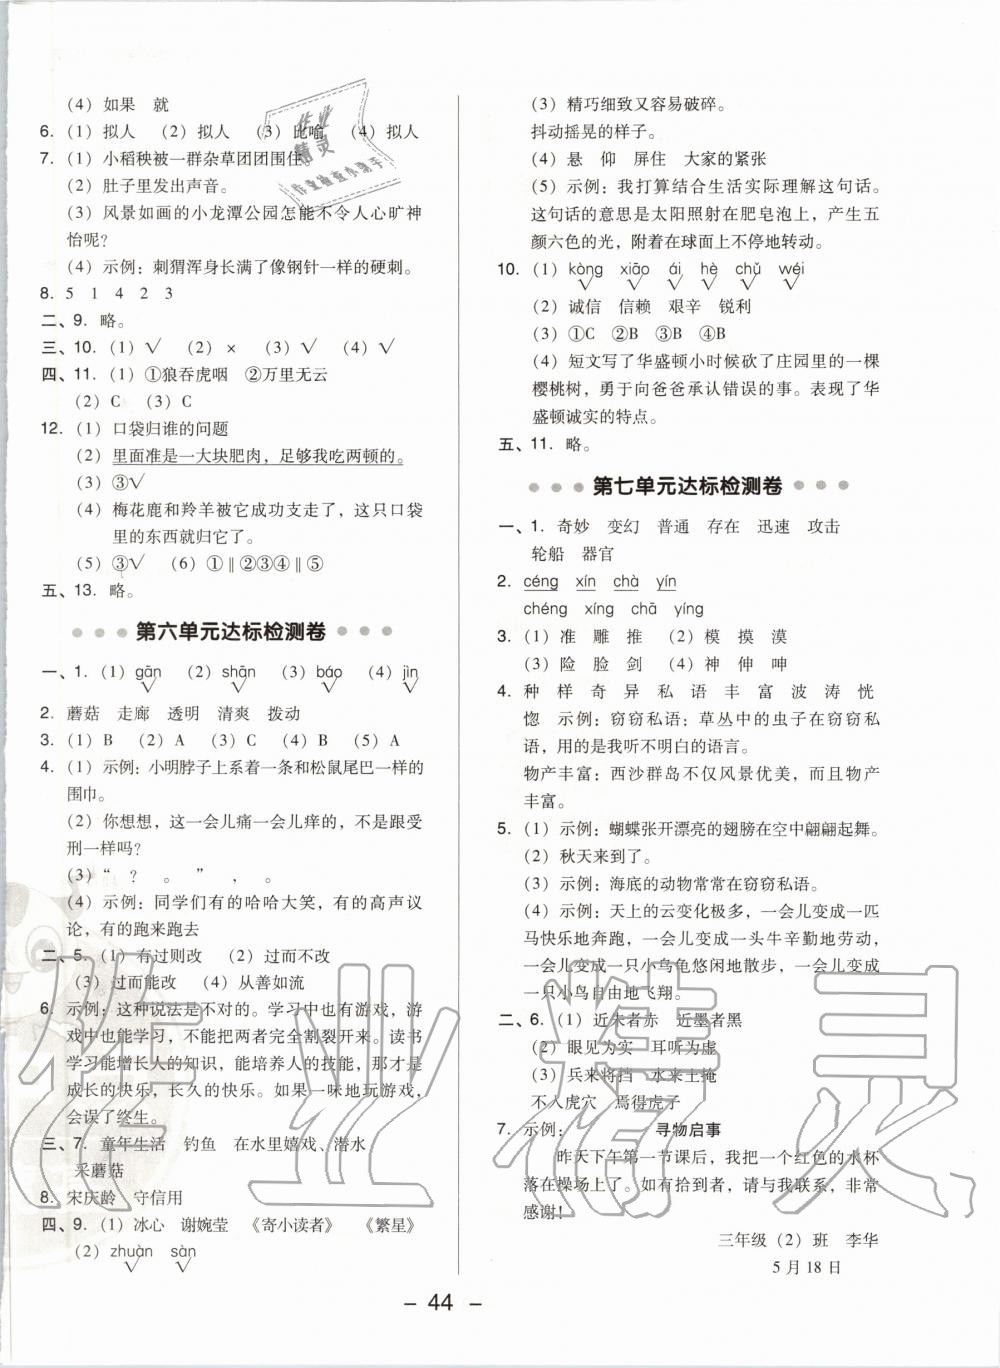 (4) 如果 就
6. (1) 拟人 (2) 拟人 (3) 比喻 (4) 拟人
7. (1) 小稻秧被一群杂草团团围住
(2) 肚子里发出声音。
(3) 风景如画的小龙潭公园怎能不令人心旷神
怡呢?
(4) 示例: 刺猬浑身长满了像钢针一样的硬刺。
8. 5 1 4 2 3
二、9. 略。
三、10. (1) √ (2) × (3) √ (4) √
四、11. (1) ①狼吞虎咽 ②万里无云
(2) C (3) C
12. (1) 口袋归谁的问题
(2) 里面准是一大块肥肉，足够我吃两顿的。
(3) ③√
(4) 梅花鹿和羚羊被它成功支走了，这只口袋
里的东西就归它了。
(5) ③√ (6) ①‖②③④‖⑤
五、13. 略。
第六单元达标检测卷
一、1. (1) gān √ (2) shān √ (3) báo √ (4) jìn √
2. 蘑菇 走廊 透明 清爽 拨动
3. (1) B (2) A (3) C (4) B (5) A
4. (1) 示例: 小明脖子上系着一条和松鼠尾巴一样的
围巾。
(2) 你想想，这一会儿痛一会儿痒的，不是跟受
刑一样吗?
(3) “ ? 。 ” , 。
(4) 示例: 同学们有的哈哈大笑，有的高声议
论，有的跑来跑去
二、5. (1) 有过则改 (2) 过而不改
(3) 过而能改 (4) 从善如流
6. 示例: 这种说法是不对的。学习中也有游戏，游
戏中也能学习，不能把两者完全割裂开来。读书
学习能增长人的知识，能培养人的技能，那才是
成长的快乐，长久的快乐。如果一味地玩游戏，
会误了终生。
三、7. 童年生活 钓鱼 在水里嬉戏、潜水
采蘑菇
8. 宋庆龄 守信用
四、9. (1) 冰心 谢婉莹 《寄小读者》 《繁星》
(2) zhuàn √ sàn √
(3) 精巧细致又容易破碎。
抖动摇晃的样子。
(4) 悬 仰 屏住 大家的紧张
(5) 示例: 我打算结合生活实际理解这句话。
这句话的意思是太阳照射在肥皂泡上，产生五
颜六色的光，附着在球面上不停地转动。
10. (1) kòng √ xiāo √ ái √ hè √ chǔ √ wéi √
(2) 诚信 信赖 艰辛 锐利
(3) ①C ②B ③B ④B
(4) 短文写了华盛顿小时候砍了庄园里的一棵
樱桃树，勇于向爸爸承认错误的事。表现了华
盛顿诚实的特点。
五、11. 略。
第七单元达标检测卷
一、1. 奇妙 变幻 普通 存在 迅速 攻击
轮船 器官
2. céng xín chà yín
chéng xíng chā yíng
3. (1) 准 雕 推 (2) 模 摸 漠
(3) 险 脸 剑 (4) 神 伸 呻
4. 种 样 奇 异 私 语 丰 富 波 涛 恍
惚 示例: 窃窃私语: 草丛中的虫子在窃窃私
语，用的是我听不明白的语言。
物产丰富: 西沙群岛不仅风景优美，而且物产
丰富。
5. (1) 示例: 蝴蝶张开漂亮的翅膀在空中翩翩起舞。
(2) 秋天来到了。
(3) 示例: 海底的动物常常在窃窃私语。
(4) 示例: 天上的云变化极多，一会儿变成一匹
马快乐地奔跑，一会儿变成一头牛辛勤地劳动，
一会儿变成一只小乌龟悠闲地散步，一会儿变成
一只小鸟自由地飞翔。
二、6. (1) 近朱者赤 近墨者黑
(2) 眼见为实 耳听为虚
(3) 兵来将挡 水来土掩
不入虎穴 焉得虎子
7. 示例: 寻物启事
昨天下午第一节课后，我把一个红色的水杯
落在操场上了。如有拾到者，请与我联系，非常
感谢!
三年级 (2) 班 李华
5月18日
- 44 -
作业精灵
作业精灵
作业检查小助手